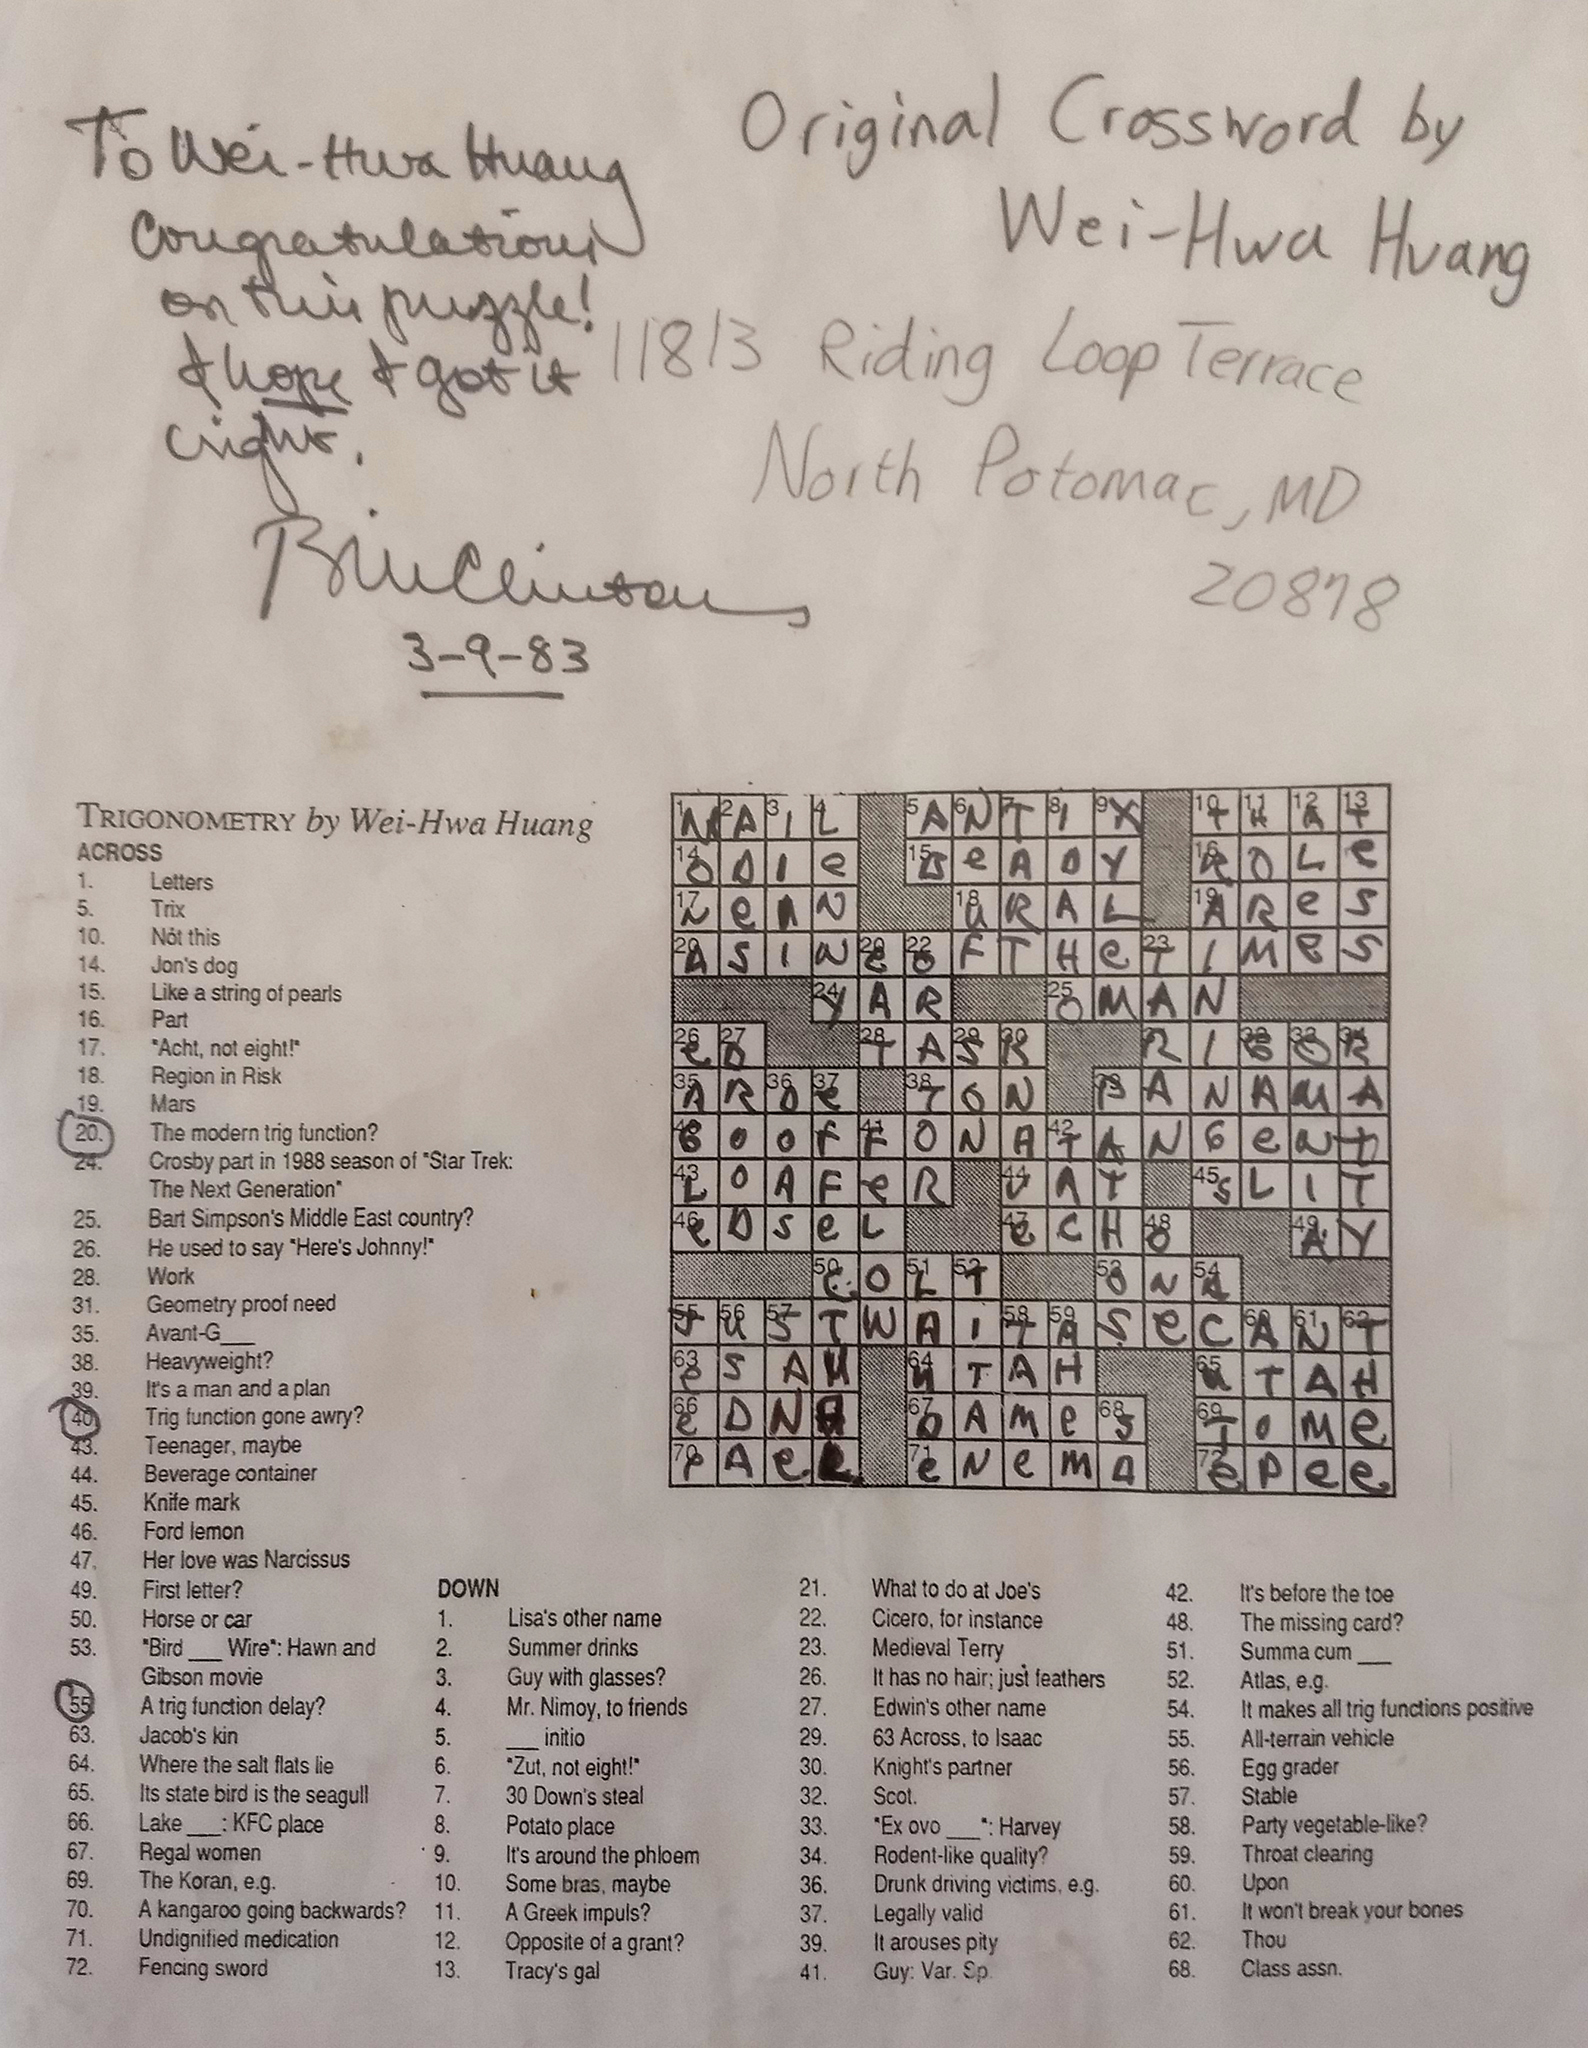 To Wei-Hwa Huang
Congratulations
on this puzzle!
I hope I got it
right.
Bill Clinton
3-9-83
Original Crossword by
Wei-Hwa Huang
11813 Riding Loop Terrace
North Potomac, MD
20878
TRIGONOMETRY by Wei-Hwa Huang
ACROSS
1. Letters
5. Trix
10. Not this
14. Jon's dog
15. Like a string of pearls
16. Part
17. "Acht, not eight!"
18. Region in Risk
19. Mars
20. The modern trig function?
24. Crosby part in 1988 season of "Star Trek:
The Next Generation"
25. Bart Simpson's Middle East country?
26. He used to say "Here's Johnny!"
28. Work
31. Geometry proof need
35. Avant-G___
38. Heavyweight?
39. It's a man and a plan
40. Trig function gone awry?
43. Teenager, maybe
44. Beverage container
45. Knife mark
46. Ford lemon
47. Her love was Narcissus
49. First letter?
50. Horse or car
53. "Bird ___ Wire": Hawn and
Gibson movie
55. A trig function delay?
63. Jacob's kin
64. Where the salt flats lie
65. Its state bird is the seagull
66. Lake ___: KFC place
67. Regal women
69. The Koran, e.g.
70. A kangaroo going backwards?
71. Undignified medication
72. Fencing sword
DOWN
1. Lisa's other name
2. Summer drinks
3. Guy with glasses?
4. Mr. Nimoy, to friends
5. ___ initio
6. "Zut, not eight!"
7. 30 Down's steal
8. Potato place
9. It's around the phloem
10. Some bras, maybe
11. A Greek impuls?
12. Opposite of a grant?
13. Tracy's gal
21. What to do at Joe's
22. Cicero, for instance
23. Medieval Terry
26. It has no hair; just feathers
27. Edwin's other name
29. 63 Across, to Isaac
30. Knight's partner
32. Scot.
33. "Ex ovo ___": Harvey
34. Rodent-like quality?
36. Drunk driving victims, e.g.
37. Legally valid
39. It arouses pity
41. Guy: Var. Sp.
42. It's before the toe
48. The missing card?
51. Summa cum ___
52. Atlas, e.g.
54. It makes all trig functions positive
55. All-terrain vehicle
56. Egg grader
57. Stable
58. Party vegetable-like?
59. Throat clearing
60. Upon
61. It won't break your bones
62. Thou
68. Class assn.
NAIL ANTIX THAT
ODIE BEADY ROLE
NEIN URAL ARES
ASINEOFTHETIMES
YAR OMAN
ED TASK RIGOR
ARDE TON PANAMA
GOOFFONATANGENT
LOAFER VAT SLIT
EDSEL ECHO AY
COLT ONA
JUSTWAITASECANT
ESAU UTAH UTAH
EDNA DAMES TOME
PAEL ENEMA EPEE